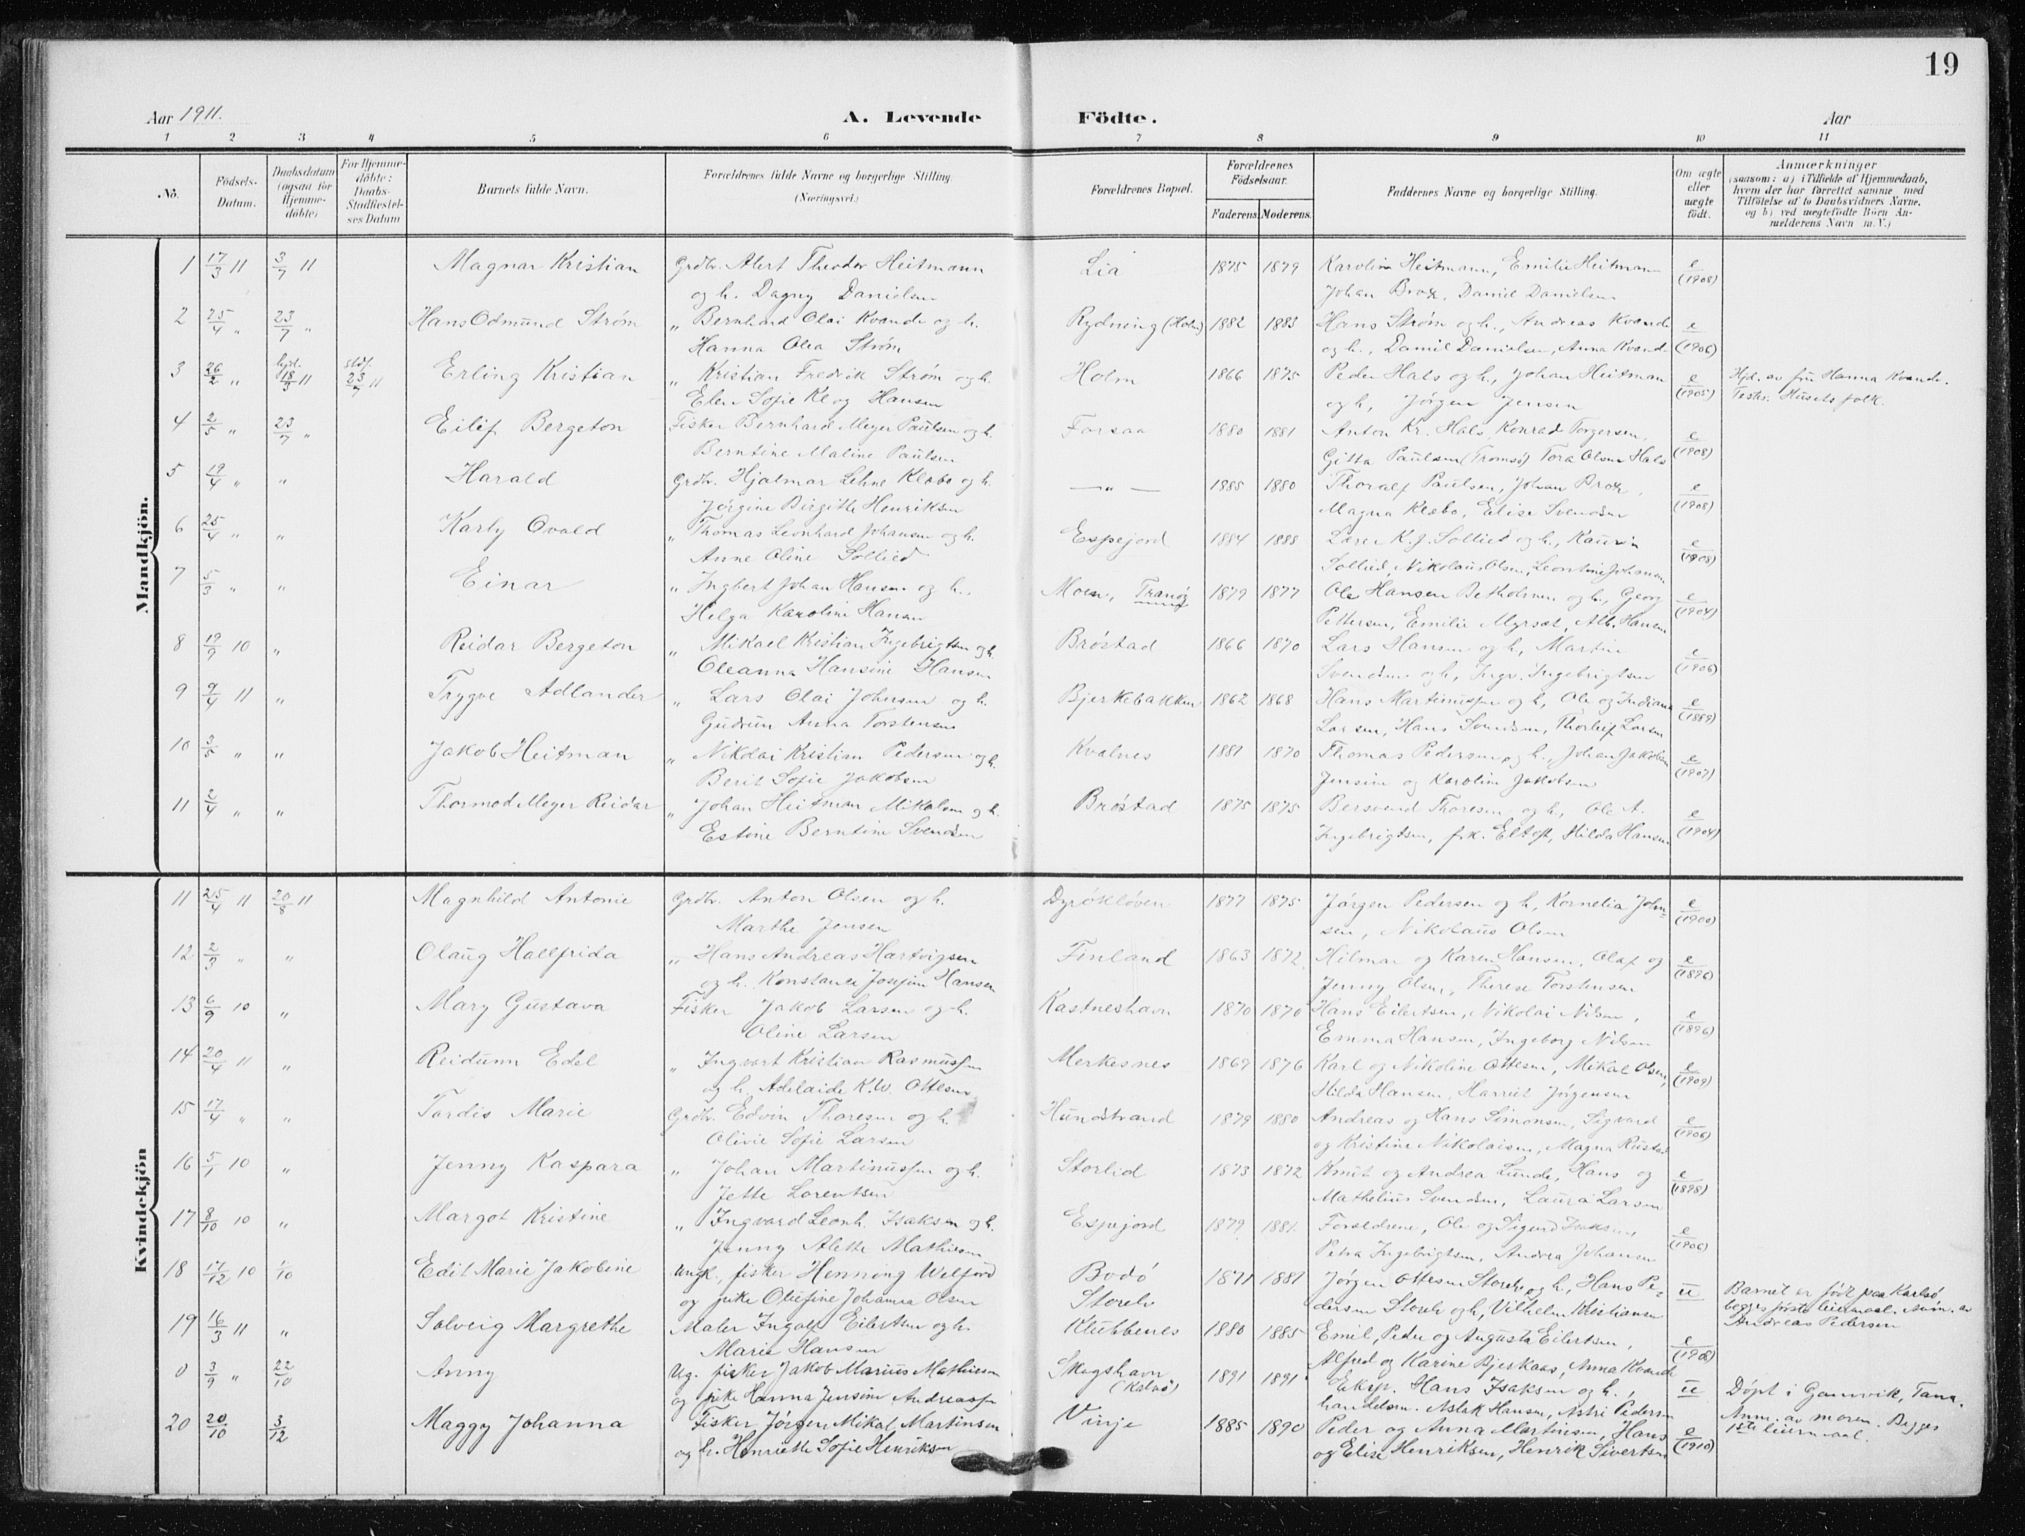 19
Aar 1911. A. Levende Födte. Aar
1 2 3 4 5 6 7 8 9 10 11
Nö. Födsels-Datum. Daabsdatum (ogsaa for Hjemmedöbte) For Hjemmedöbte: Daabs-Stadfæstelses Datum Barnets fulde Navn. Forældrenes fulde Navne og borgerlige Stilling (Næringsvei.) Forældrenes Bopæl. Forældrenes Födselsaar. Faderens. Moderens. Faddernes Navne og borgerlige Stilling. Om ægte eller uægte födt. Anmærkninger (saasom: a) i Tilfælde af Hjemmedaab, hvem der har forrettet samme med Tilföielse af to Daabsvidners Navne, og b) ved uægtefödte Börn Anmelderens Navn m.V.)
Mandkjön.
1 17/3 11 3/7 11 Magnar Kristian Grdbr. Alert Theodor Heitmann Lia 1875 1879 Karolina Heitmann, Emilie Heitman e (1908)
og h. Dagny Danielsen Johan Brox, Daniel Danielsen
2 25/4 " 23/7 " Hans Odmund Strøm " Bernhard Olai Kvande og h. Rydning (Holm) 1882 1883 Hans Strøm og h., Andreas Kvande e (1906)
Hanna Olea Strøm og h., Daniel Danielsen, Anna Kvande
3 26/2 " hjd. 18/3 11 stdf. 23/7 11 Erling Kristian " Kristian Fredrik Strøm og h. Holm 1866 1875 Peder Hals og h., Johan Heitman e (1905) Hjd. av fru Hanna Kvande.
Elen Sofie Klog Hansen og h., Jørgen Jensen Testr. Husets folk.
4 2/5 " 23/7 " Eilif Bergeton Fisker Bernhard Meyer Paulsen og h. Forsaa 1880 1881 Anton Kr. Hals, Konrad Torgersen, e (1908)
Berntine Maline Paulsen Gitta Paulsen (Tromsø) Tora Olsen Hals
5 19/4 " " Harald Grdbr. Hjalmar Lehne Klæbo og h. — " — 1885 1880 Thoralf Paulsen, Johan Brox, e (1908)
Jørgine Birgitte Henriksen Magna Klæbo, Elise Svendsen
6 25/4 " " Karly Ovald " Thomas Leonhard Johansen og h. Espejord 1884 1888 Lærer K. J. Sollied og h., e (1908)
Anne Oline Sollied Sollied, Nikolaus Olsen, Leontine Johansen
7 5/3 " " Einar " Ingbert Johan Hansen og h., Moen, Tranøy 1879 1877 Ole Hansen og h., Georg e (1904)
Helga Karoline Hansen Pettersen, Emilie Myrset, Alb. Hansen
8 19/9 10 " Reidar Bergeton " Mikael Kristian Ingebrigtsen og h. Brøstad 1866 1870 Lars Hansen og h., Martin e (1906)
Oleanna Hansine Hansen Svendsen og h., Ingv. Ingebrigtsen
9 9/4 11 " Trygve Adlander " Lars Olai Johnsen og h. Bjerkebakken 1862 1868 Hans Martinussen og h., Ole og Indiana e (1889)
Gudrun Anna Torstensen Larsen, Hans Svendsen, Thorleif Larsen
10 3/5 " " Jakob Heitman " Nikolai Kristian Pedersen og h. Kvalnes 1881 1870 Thomas Pedersen og h., Johan Jakobsen e (1907)
Berit Sofie Jakobsen Jensine og Karoline Jakobsen
11 2/4 " " Thormod Meyer Reidar " Johan Heitman Mikalsen og h. Brøstad 1875 1875 Bersvend Thoresen og h., Ole A. e (1904)
Estine Berntine Svendsen Ingebrigtsen, frk. Eltoft, Hilda Hansen
Kvindekjön
11 25/4 11 20/8 11 Magnhild Antonie Grdbr. Anton Olsen og h. Dyrökløven 1877 1875 Jørgen Pedersen og h., Kornelia John- e (1900)
Marthe Jensen sen, Nikolaus Olsen
12 2/3 " " Olaug Hallfrida " Hans Andreas Hartvigsen Finland 1863 1872 Hilmar og Karen Hansen, Olaf og e (1896)
og h. Konstance Josefine Hansen Jenny Olsen, Therese Torstensen
13 6/9 10 " Mary Gustava Fisker Jakob Larsen og h. Kastneshavn 1870 1870 Hans Eilertsen, Nikolai Nilsen, e (1896)
Oline Larsen Emma Hansen, Ingeborg Nilsen
14 20/4 11 " Reidunn Edel " Ingvart Kristian Rasmussen Merkesnes 1869 1876 Karl og Nikoline Ottesen, Mikal Olsen, e (1909)
og h. Adelaide K. W. Ottesen Hilda Hansen, Harriet Jørgensen
15 17/4 " " Tordis Marie Grdbr. Edvin Thoresen og h. Hundstrand 1879 1880 Andreas og Hans Simonsen, Sigvard e (1906)
Olivie Sofie Larsen og Kristine Nikolaisen, Magna Rustad
16 5/1 10 " Jenny Kaspara " Johan Martinussen og h. Storlid 1873 1872 Knut og Andrea Lunde, Hans og e (1898)
Jette Lorentsen Mathelius Svendsen, Laura Larsen
17 8/10 10 " Margot Kristine " Ingvard Leonh. Isaksen og h. Espejord 1879 1881 Forældrene, Ole og Sigurd Isaksen, e (1906)
Jenny Alette Mathisen Petra Ingebrigtsen, Andrea Johansen
18 17/12 10 1/10 Edit Marie Jakobine Ungk. fisker Henning Welford Bodø 1871 1881 Jørgen Ottesen Storelv og h., Hans Pe- u Barnet er født paa Karlsø
og pike Oliefine Johanna Olsen Storelv dersen Storelv og h., Vilhelm Kristiansen begges første leiermaal. Anm. av
19 16/3 11 " Solveig Margrethe Maler Ingolf Eilertsen og h. Klubbenes 1880 1885 Emil, Peder og Augusta Eilertsen, e Andreas Pedersen
Marie Hansen Alfred og Karine Bjerkaas, Anna Kvande
0 3/9 " 22/10 Anny Ug. fisker Jakob Marius Mathisen Skogshavn (Kalvø) 1891 1891 Eksp. Hans Isaksen og h., u Døpt i Gamvik, Tana.
og pike Hanna Jensine Andreassen Aslak Hansen, Astri Pedersen Anm. av moren. Begges
20 20/10 3/12 Maggy Johanna Fisker Jørgen Mikal Martinsen Vinje 1885 1890 Peder og Anna Martinsen, Hans e (1910) 1ste leiermaal.
og h. Henriette Sofie Henriksen og Elise Henriksen, Henrik Sivertsen